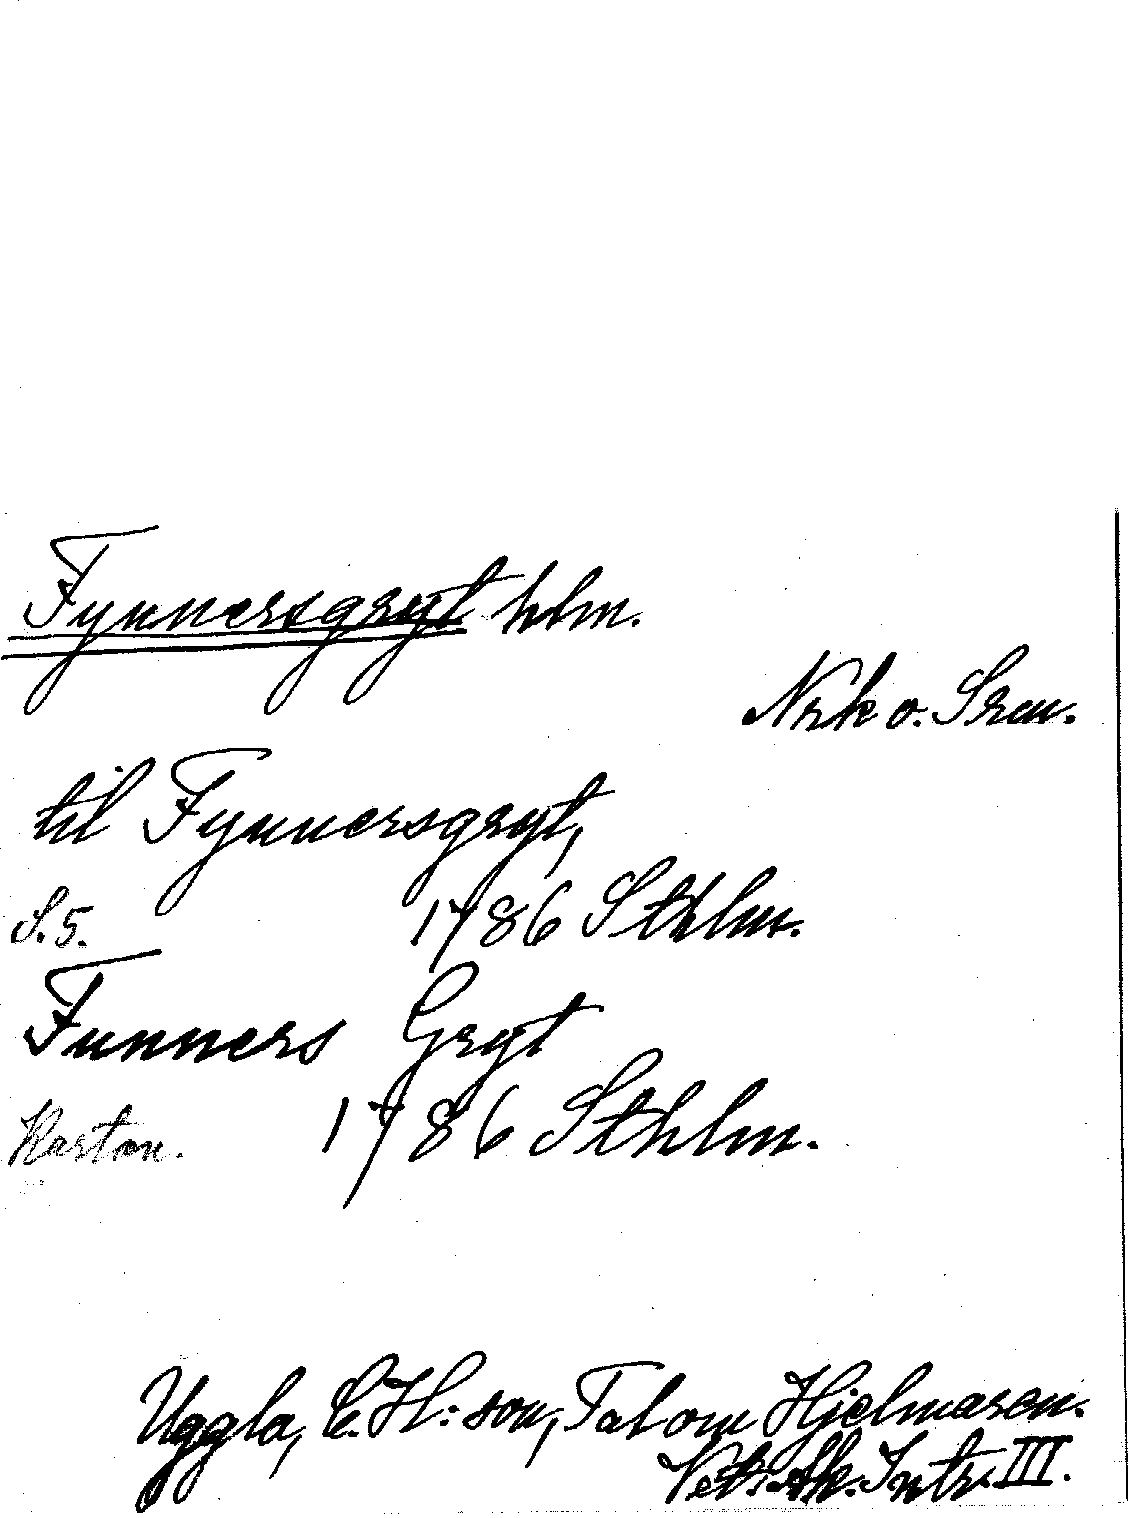 Fynnersgryt hlm.
Nrk o. Srm.
til Fynnersgryt,
S. 5. 1786 Sthlm.
Funners Gryt
Kartan. 1786 Sthlm.
Uggla, C. H:son, Tal om Hjelmaren.
Vet. Ak. Intr. III.